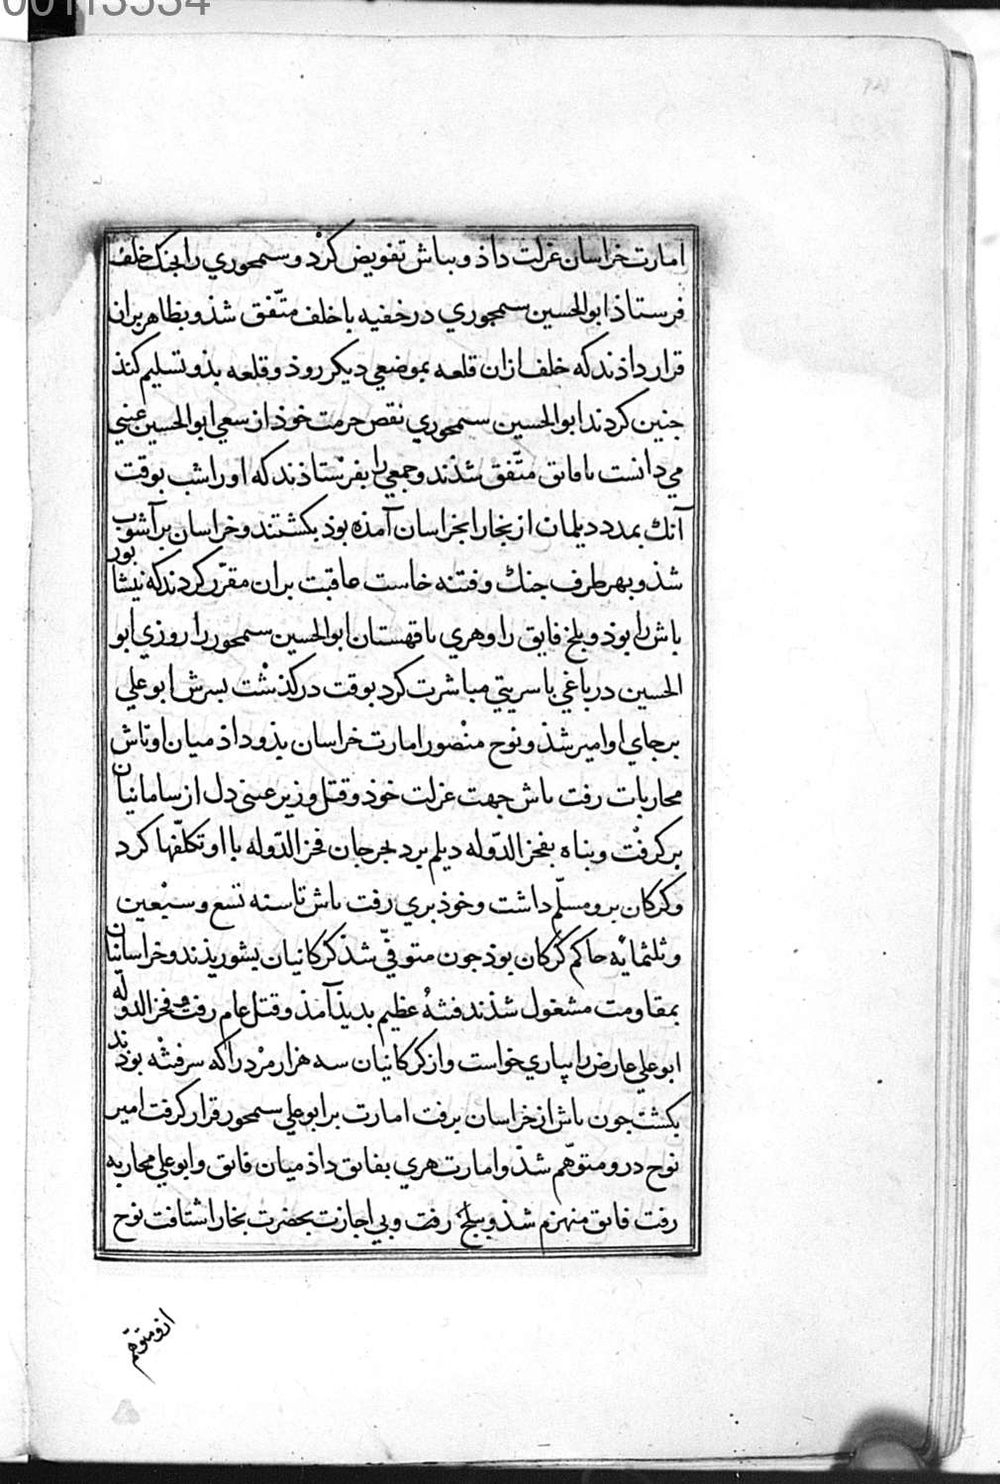 00113534
امارت خراسان عزلت داذ و بتاش تفویض کرد و سیمجوری را بجنک خلف
فرستاذ ابوالحسین سیمجوری در خفیه با خلف متّفق شذ و بظاهر بران
قرار داذند که خلف ازان قلعه بموضعی دیکر روذ و قلعه بذو تسلیم کنذ
جنین کردند ابوالحسین سیمجوری نقص حرمت خوذ از سعی ابوالحسین عتبی
می دانست با فایق متّفق شذند و جمعی را بفرستاذند که او را شب بوقت
آنک بمدد دیلمان از بخارا بخراسان آمذه بوذ بکشتند و خراسان بر آشوب
شذ و بهر طرف جنک و فتنه خاست عاقبت بران مقرّر کردند که نیشابور
تاش را بوذ و بلخ فایق را و هری با قهستان ابوالحسین سیمجور را روزی ابو
الحسین در باغی با سریتی مباشرت کرد بوقت در کذشت بسرش ابوعلی
برجای او امیر شذ و نوح منصور امارت خراسان بذو داذ میان او و تاش
محاربات رفت تاش جهت عزلت خوذ و قتل وزیر عتبی دل از سامانیان
برکرفت و بناه بفخر الدّوله دیلم برد بجرجان فخر الدّوله با او تکلّفها کرد
و کرکان برو مسلّم داشت و خوذ بری رفت تاش تا سنه تسع و سبعین
و ثلثمایه حاکم کرکان بوذ جون متوفّی شذ کرکانیان بشوریذند و خراسانیان
بمقاومت مشغول شذند فتنهٔ عظیم بدیذ آمذ و قتل عام رفت و فخر الدوله
ابوعلی عارض را بیاری خواست و از کرکانیان سه هزار مرد را که سر فتنه بوذند
بکشت جون تاش از خراسان برفت امارت بر ابوعلی سیمجور قرار کرفت امیر
نوح درو متوهّم شذ و امارت هری بفایق داذ میان فایق و ابوعلی محاربه
رفت فایق منهزم شذ و ببلخ رفت و بی اجازت بحضرت بخارا شتافت نوح
ازو متوهّم